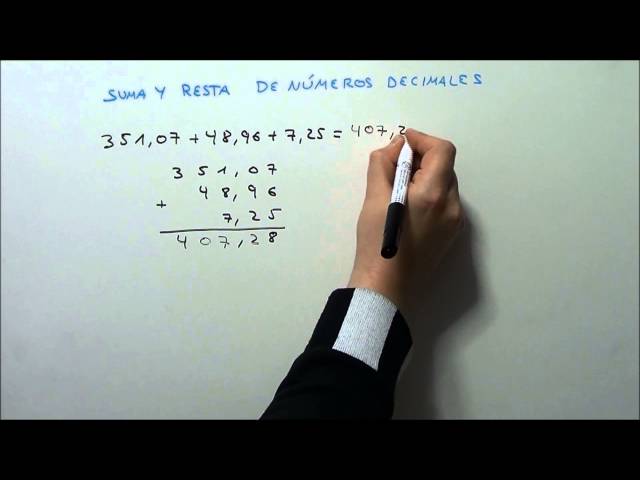 SUMA Y RESTA DE NÚMEROS DECIMALES
351,07 + 48,96 + 7,25 = 407,2
351,07
48,96
+
7,25
407,28